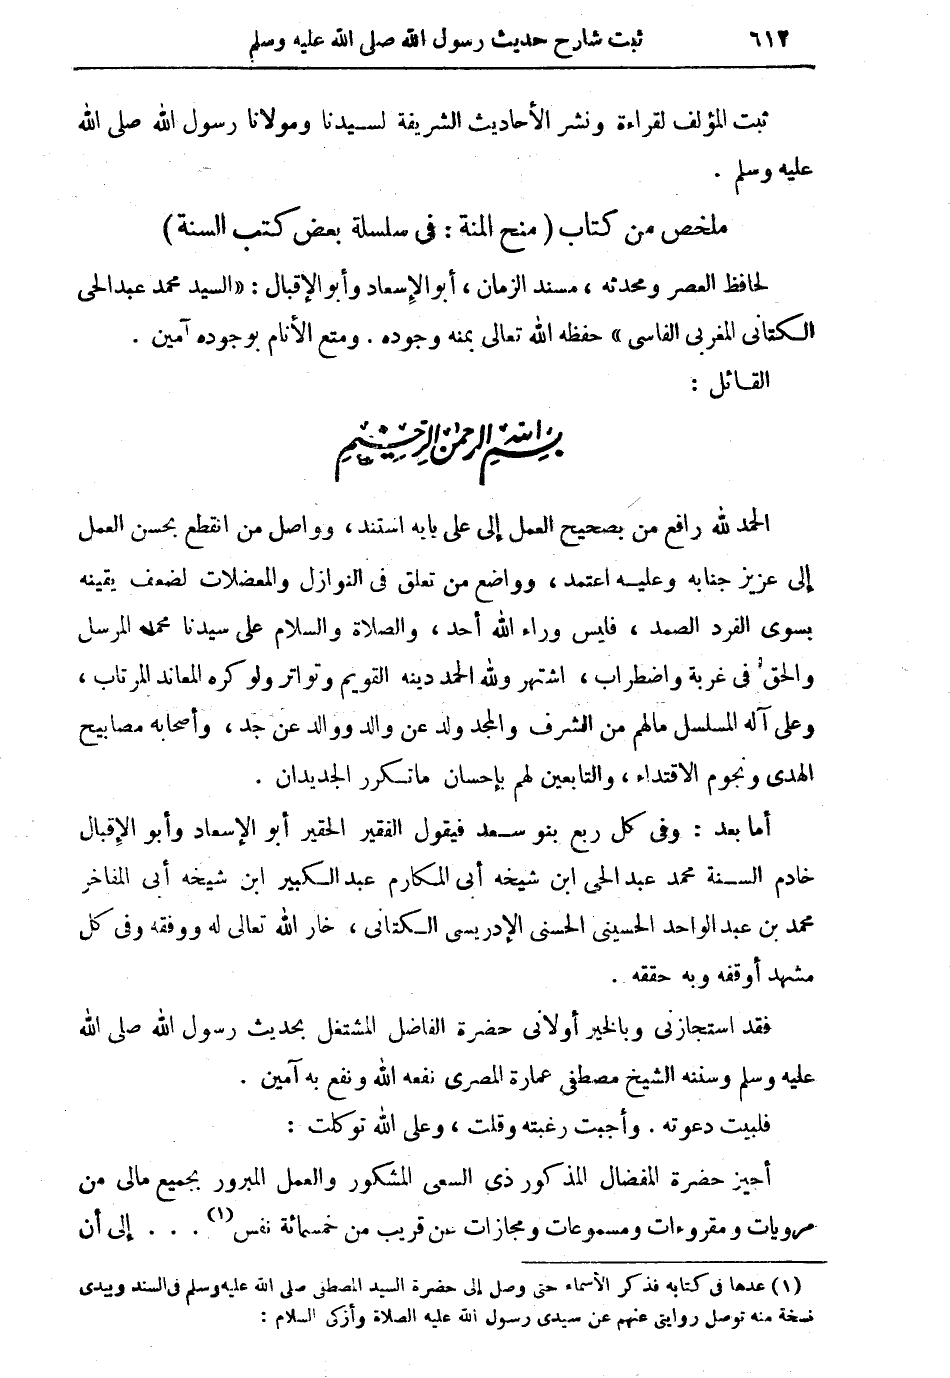 ٦١٢ ثبت شارح حديث رسول الله صلى الله عليه وسلم
ثبت المؤلف لقراءة ونشر الأحاديث الشريفة لسيدنا ومولانا رسول الله صلى الله
عليه وسلم .
ملخص من كتاب ( منح المنة : فى سلسلة بعض كتب السنة )
لحافظ العصر ومحدثه ، مسند الزمان ، أبو الإسعاد وأبو الإقبال : «السيد محمد عبدالحى
الكتانى المغربى الفاسى» حفظه الله تعالى بمنه وجوده . ومتع الأنام بوجوده آمين .
القائل :
بسم الله الرحمن الرحيم
الحمد لله رافع من بصحيح العمل إلى على بابه استند ، وواصل من انقطع بحسن العمل
إلى عزيز جنابه وعليه اعتمد ، وواضع من تعلق فى النوازل والمعضلات لضعف يقينه
بسوى الفرد الصمد ، فليس وراء الله أحد ، والصلاة والسلام على سيدنا محمد المرسل
والحق فى غربة واضطراب ، اشتهر ولله الحمد دينه القويم وتواتر ولو كره المعاند المرتاب ،
وعلى آله المسلسل مالهم من الشرف والمجد ولد عن والد ووالد عن جد ، وأصحابه مصابيح
الهدى ونجوم الاقتداء ، والتابعين لهم بإحسان ماتكرر الجديدان .
أما بعد : وفى كل ربع بنو سعد فيقول الفقير الحقير أبو الإسعاد وأبو الإقبال
خادم السنة محمد عبد الحى ابن شيخه أبى المكارم عبد الكبير ابن شيخه أبى المفاخر
محمد بن عبد الواحد الحسينى الحسنى الإدريسى الكتانى ، خار الله تعالى له ووفقه وفى كل
مشهد أوقفه وبه حققه .
فقد استجازنى وبالخير أولانى حضرة الفاضل المشتغل بحديث رسول الله صلى الله
عليه وسلم وسنته الشيخ مصطفى عمارة المصرى نفعه الله ونفع به آمين .
فلبيت دعوته . وأجبت رغبته وقلت ، وعلى الله توكلت :
أجيز حضرة المفضال المذكور ذى السعى المشكور والعمل المبرور بجميع مالى من
مرويات ومقروءات ومسموعات ومجازات عن قريب من خمسمائة نفس(١) . . . إلى أن
(١) عدها فى كتابه فذكر الأسماء حتى وصل إلى حضرة السيد المصطفى صلى الله عليه وسلم فى السند ويبدى
نسخة منه توصل روايتى عنهم عن سيدى رسول الله عليه الصلاة وأزكى السلام :